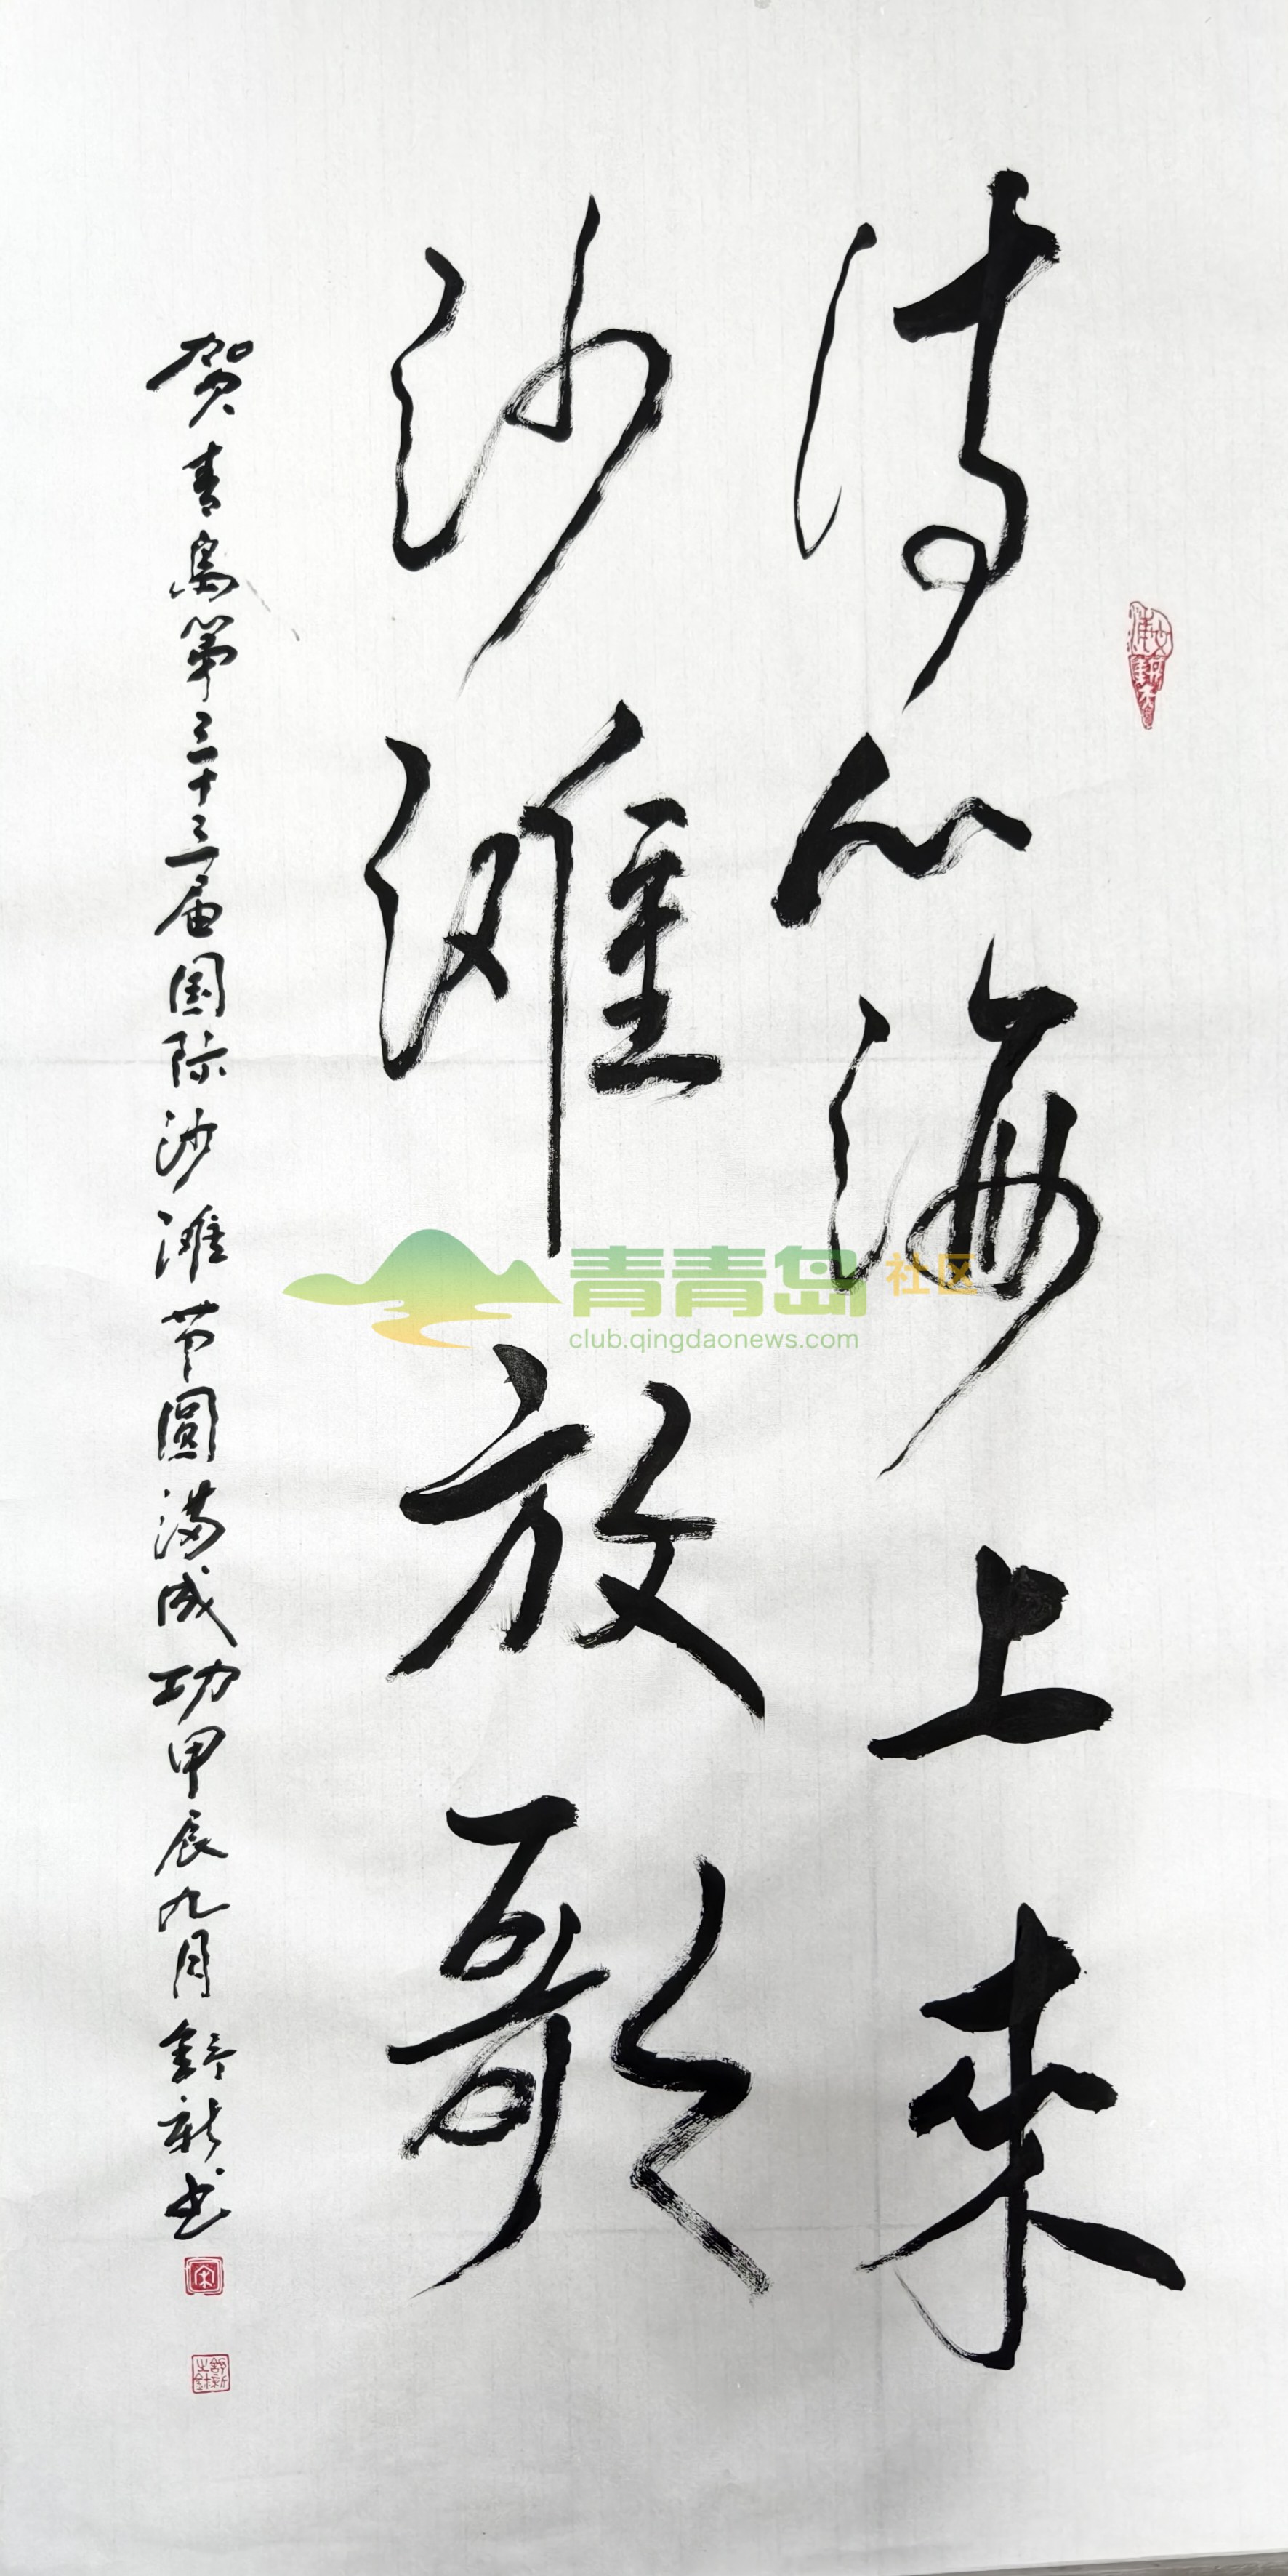 诗从海上来
沙滩放歌
贺青岛第三十三届国际沙滩节圆满成功甲辰九月舒新书
宋
青青岛社区
club.qingdaonews.com